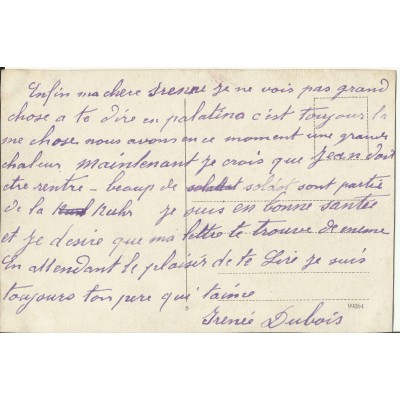 Enfin ma chere Irene je ne vois pas grand
chose a te dire en palatina c'est toujour la
me chose nous avons en ce moment une grande
chaleur maintenant je crois que Jean doit
etre rentre - beaup de soldat sont partie
de la Ruhr je suis en bonne santée
et je desire que ma lettre te trouve de meme
En attendant le plaisir de te Lire je suis
toujours ton pere qui t'aime
Irenée Dubois